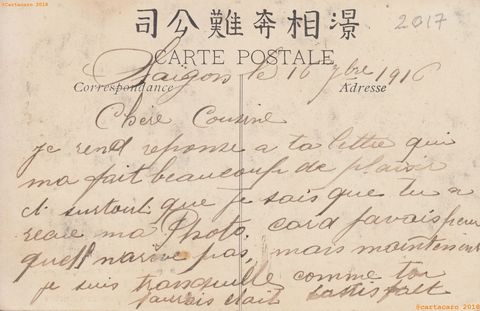 @Cartacaro 2018
司公難奔相澋
2017
CARTE POSTALE
Saïgon le 16 9bre 1916
Correspondance
Adresse
Chère Cousine
je rend reponse a ta lettre qui
ma fait beaucoup de plaisir
et surtout que je sais que tu a
recue ma Photo. card javais peur
quell narrive pas, mais maintenant
je suis tranquille comme toi
satisfait
@cartacaro 2018